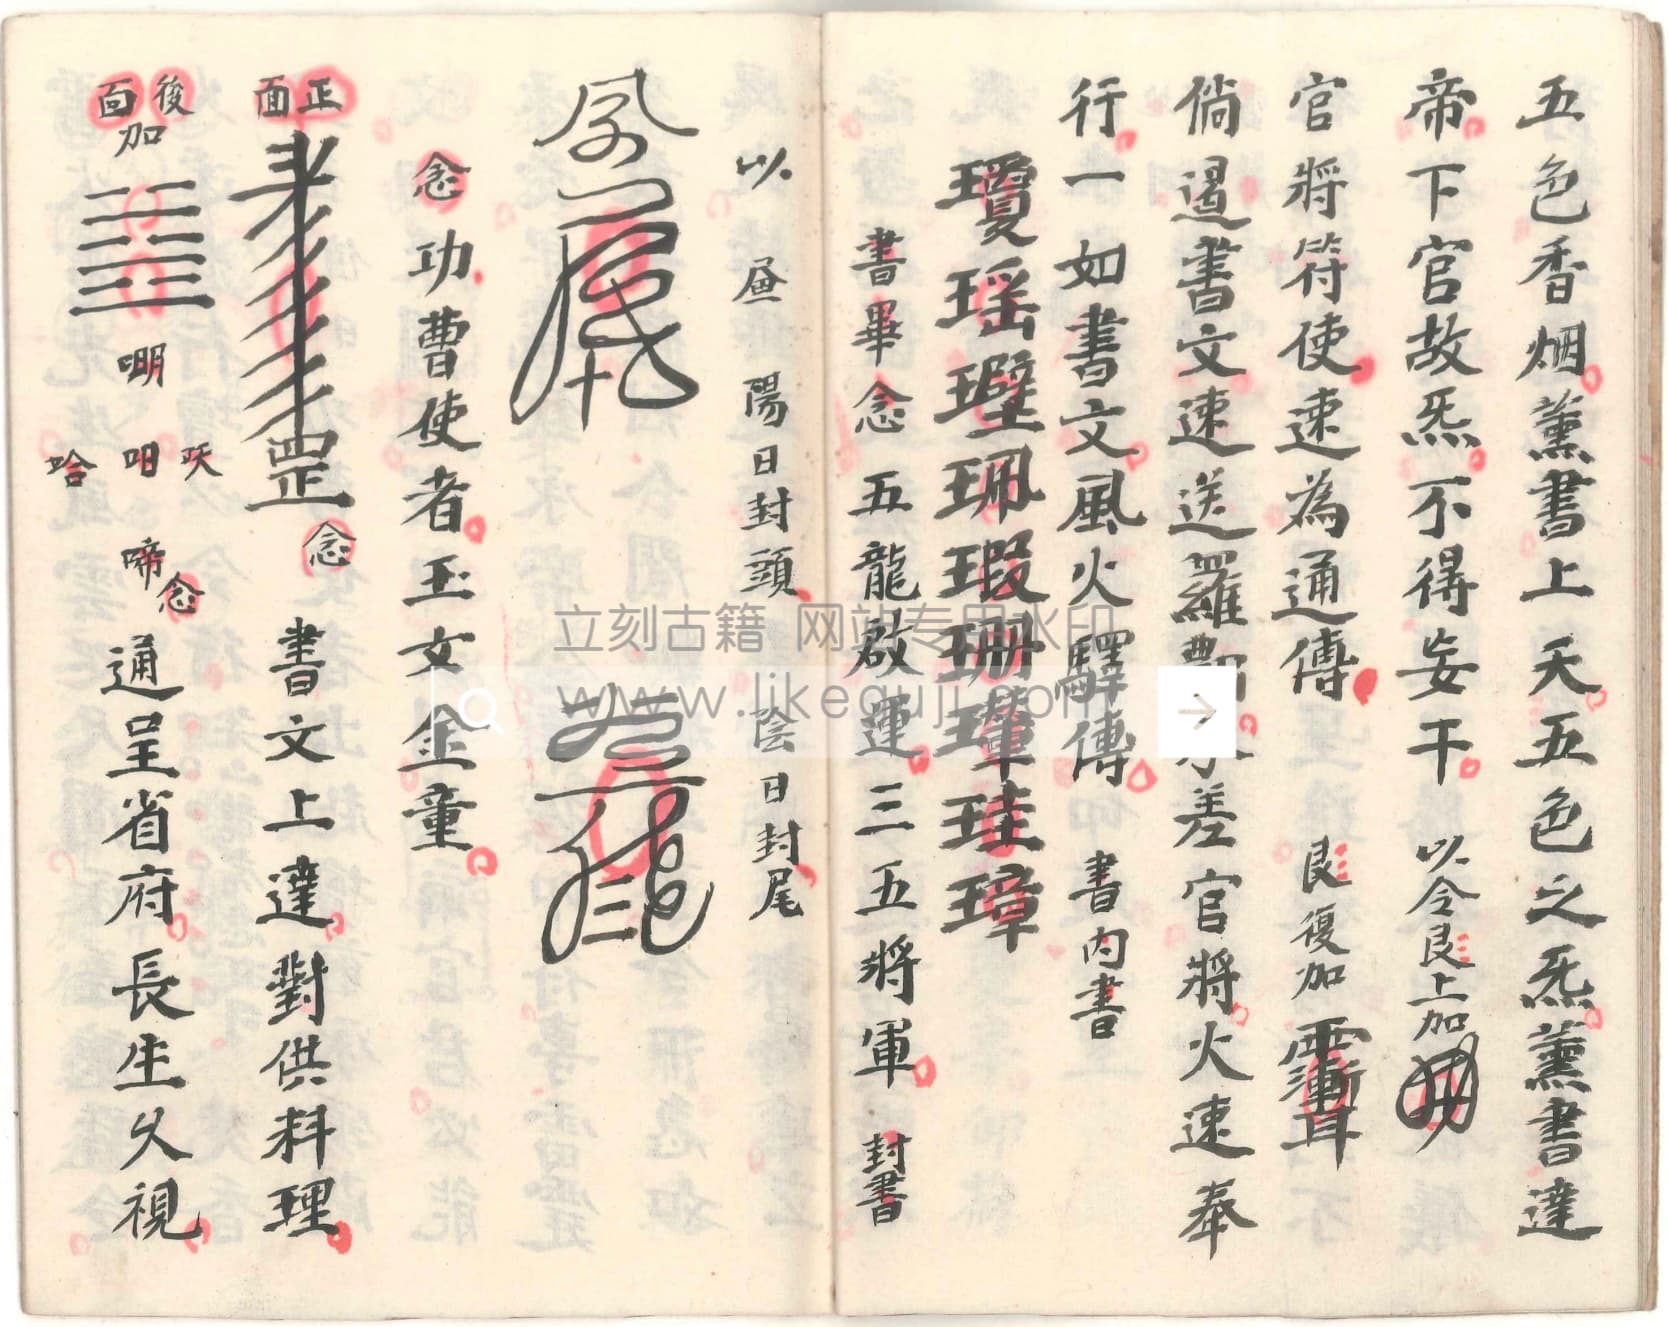 五色香烟薰書上天五色之炁薰書達
帝下官故炁不得妄干 以令艮上加
官將符使速為通傳 艮復加
倘遏書文速送羅酆 差官將火速奉
行一如書文風火驛傳 書內書
瑤璧珮瑕珊 璋
書畢念五龍啟運三五將軍 封書
以 昼 陽日封頭 陰日封尾
念功曹使者玉女金童
正面 罡 念 書文上達對供料理
後面加 嘪 呬 㕭 哈 啼 念 通呈省府長生久視
立刻古籍 网站专用水印
www.likeguji.com